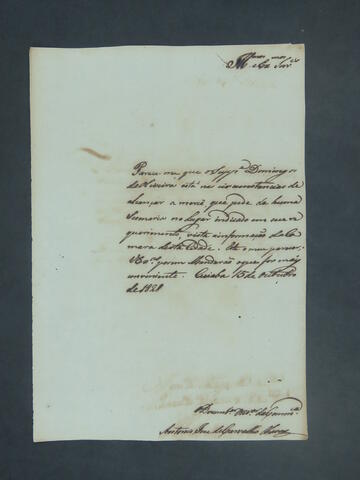 Illmos e Exmos Snres
Parece-me que o Supp.e Domingos
de Oliveira está nas circunstancias de
alcançar a mercê, que pede de huma
Sesmaria no lugar indicado em seu re
querimento, vista a informação da Ca
mara desta Cidade. He o meu parecer.
V. Ex.as porem Mandarão o que for mais
conveniente. Cuiabá 13 de Outubro
de 1828
Antonio José de Carvalho Chaves